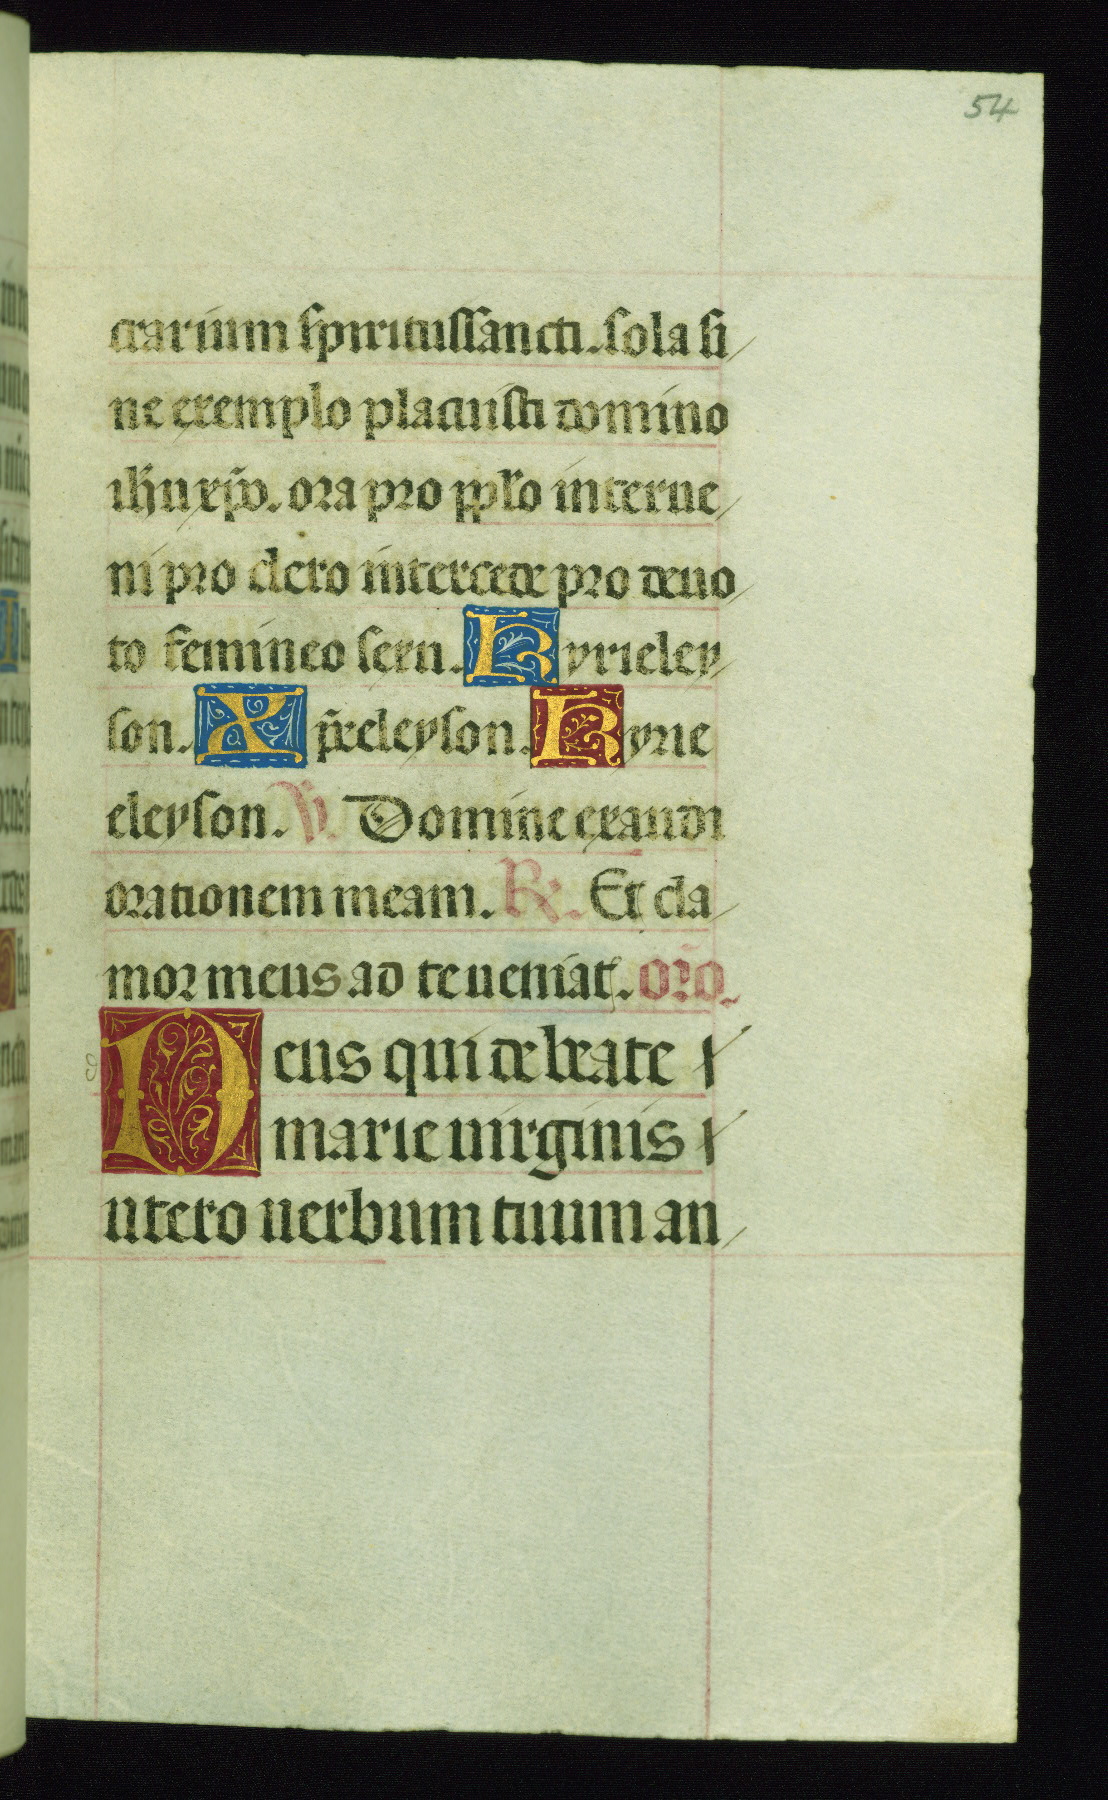 54
crarium spiritussancti. sola si
ne exemplo placuisti domino
ihu xp̄o. ora pro pplo interue
ni pro clero intercede pro deuo
to femineo sexu. Kyrieley
son. Xp̄eeleyson. Kyrie
eleyson. ℣. Domine exaudi
orationem meam. ℟. Et cla
mor meus ad te ueniat. or̄o.
Deus qui de beate
marie uirginis
utero uerbum tuum an